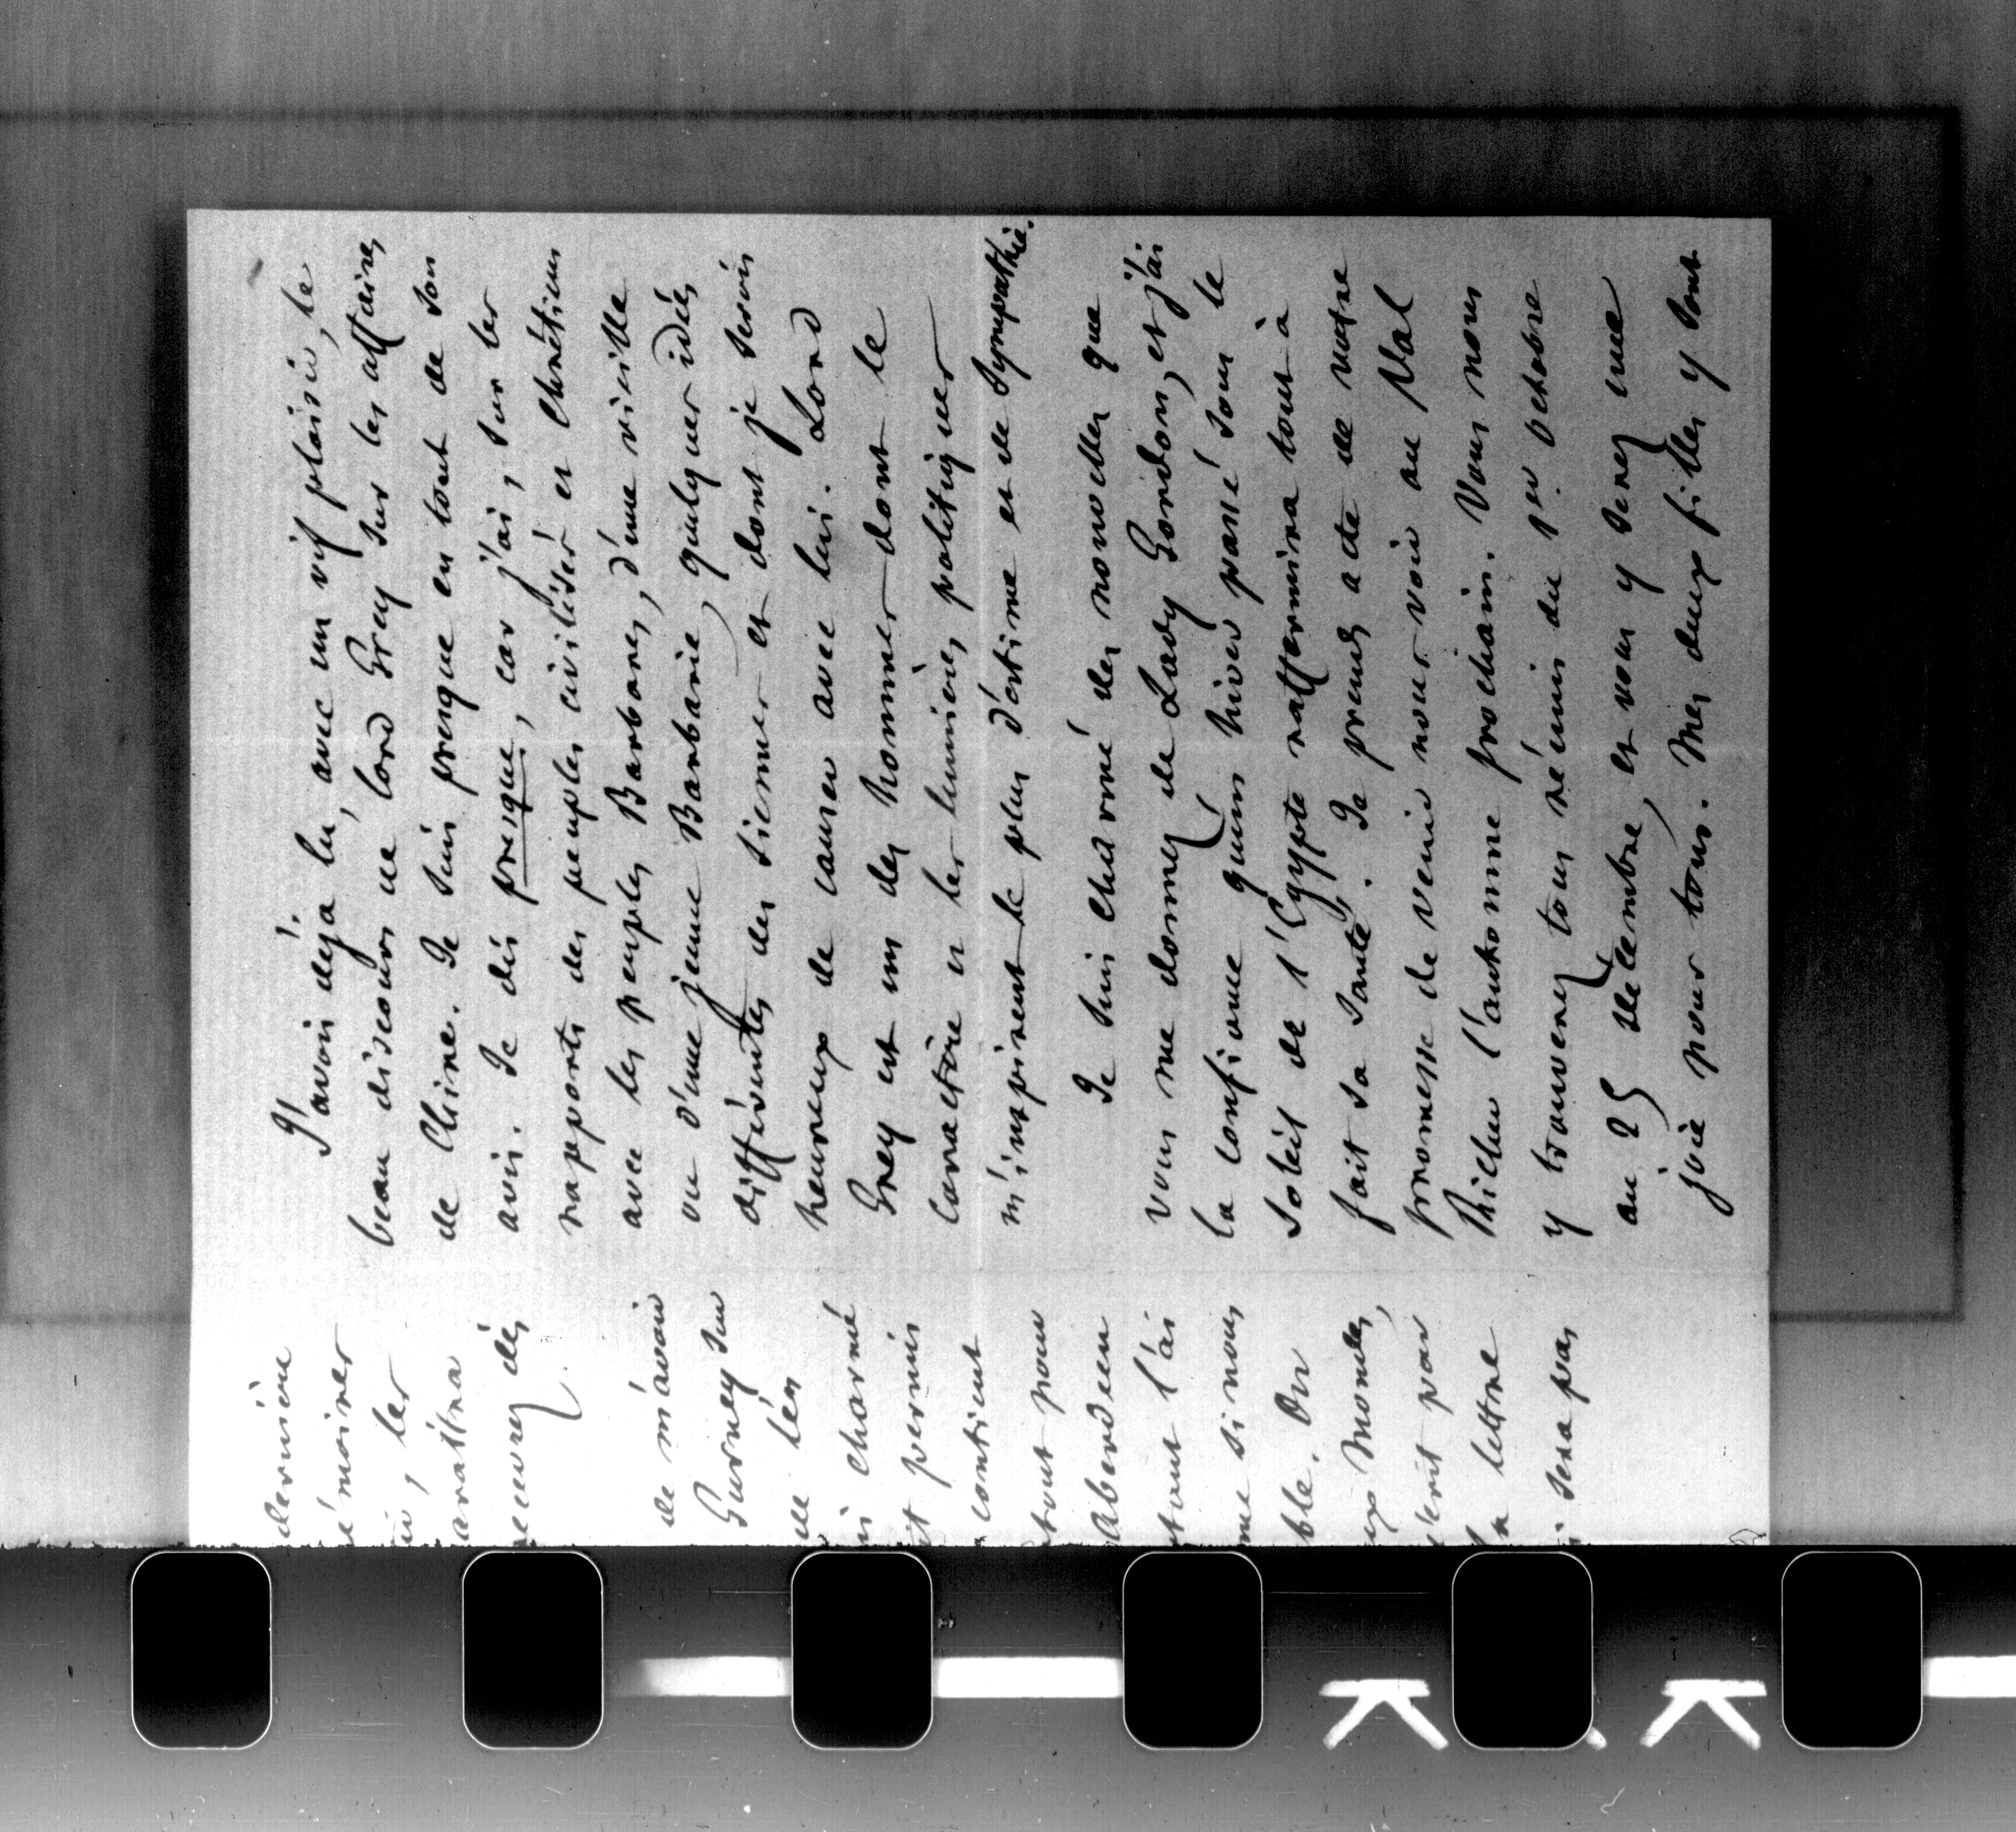 dernière
émoires
, les
araîtra
recevrez dès
de m'avoir
Gurney sur
charmé
permis
contient
tout pour
Aberdeen
tout l'ai
me si nous
ble. On
ux Mondes,
écrit par
lettre
sera pas
J'avois déjà lu, avec un vif plaisir, le
beau discours de lord Grey sur les affaires
de Chine. Je suis presque en tout de son
avis. Je dis presque, car j'ai, sur les
rapports des peuples civilisés et chrétiens
avec les peuples Barbares, d'une vieille
ou d'une jeune Barbarie, quelques idées
différentes des siennes et dont je serois
heureux de causer avec lui. Lord
Grey est un des hommes dont le
caractère et les lumières politiques
m'inspirent le plus d'estime et de sympathie.
Je suis charmé des nouvelles que
vous me donnez de Lady Gordon, et j'ai
la confiance qu'un hiver passé sous le
soleil de l'Egypte raffermira tout à
fait sa santé. Je prends acte de votre
promesse de venir nous voir au Val
Richer l'automne prochain. Vous nous
y trouverez tous réunis du 1er octobre
au 25 décembre, et vous y serez une
joie pour tous. Mes deux filles y sont